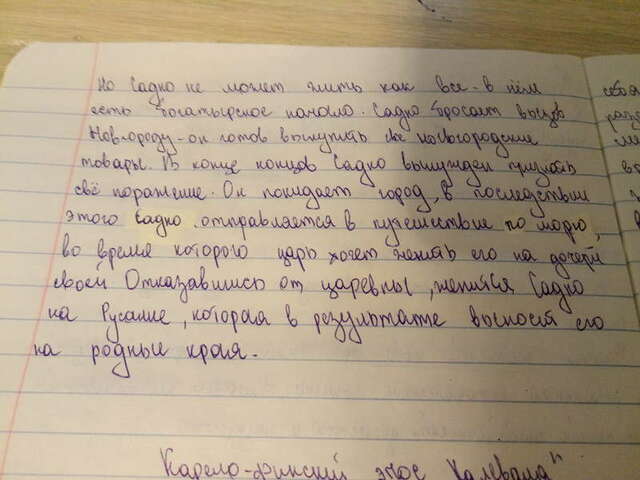 Но Садко не может жить как все - в нём
есть богатырское начало. Садко бросает вызов
Новгороду - он готов выкупить все новогородские
товары. В конце концов Садко вынужден признать
своё поражение. Он покидает город, в последствии
этого Садко отправляется в путешествие по морю,
во время которого царь хочет женить его на дочери
своей. Отказавшись от царевны, женится Садко
на Русалке, которая в результате выносит его
на родные края.
Карело-финский эпос Калевала"
себя